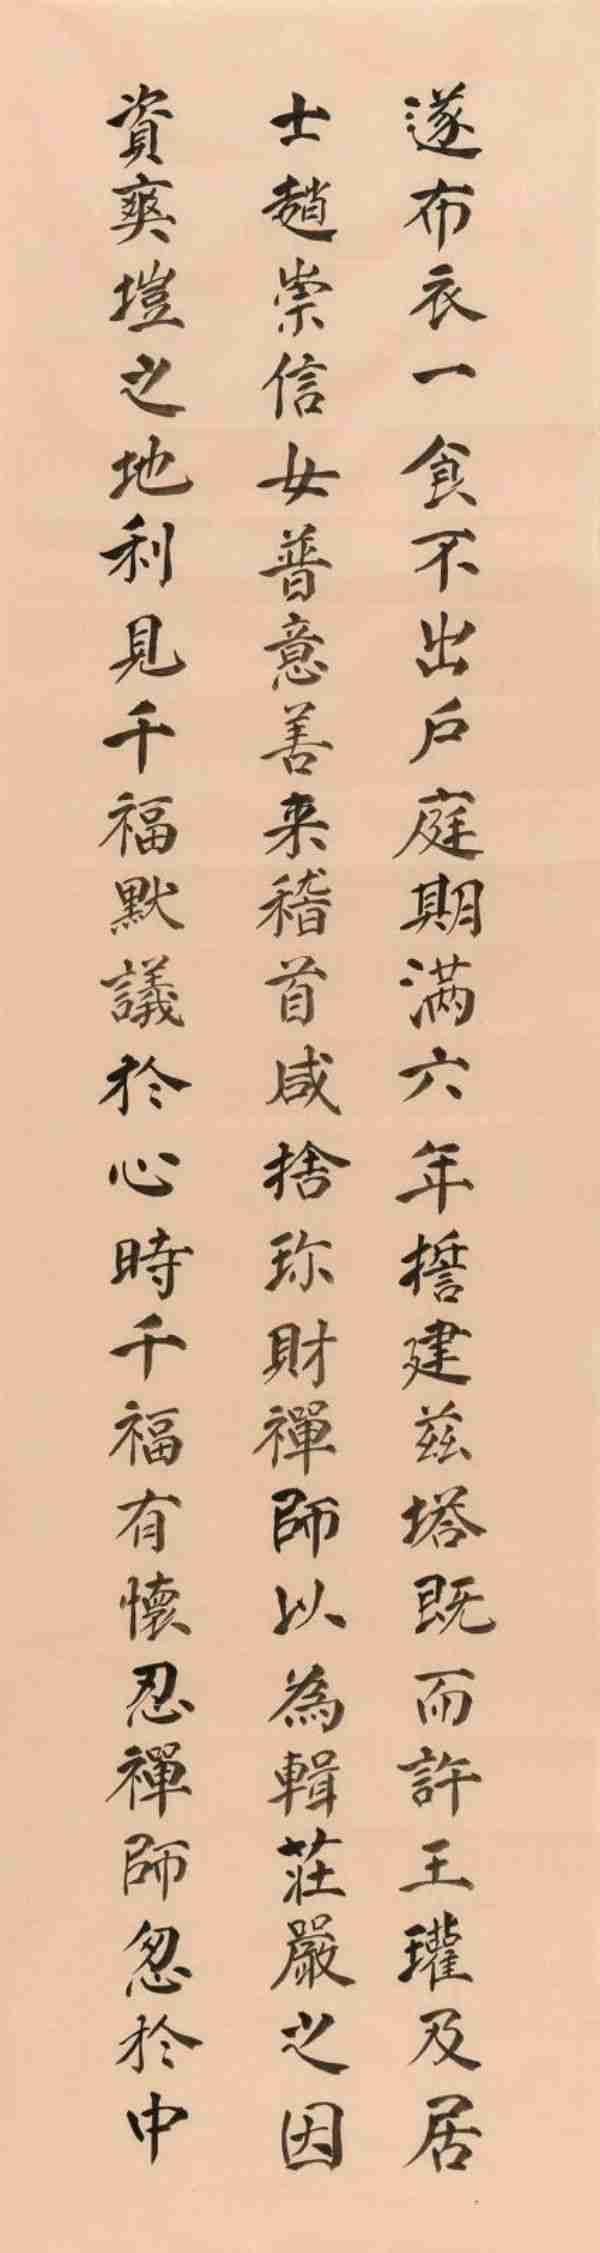 遂布衣一食不出戶庭期滿六年誓建茲塔既而許王瓘及居
士趙崇信女普意善來稽首咸捨珎財禪師以為輯莊嚴之因
資爽塏之地利見千福默議於心時千福有懷忍禪師忽於中